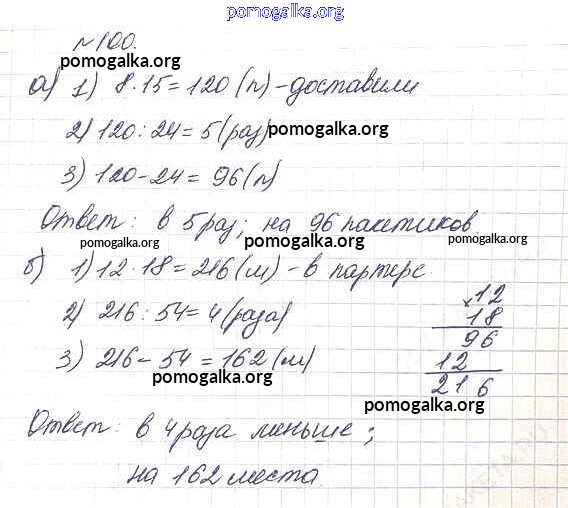 pomogalka.org
№100.
pomogalka.org
а) 1) 8·15=120 (п)-доставили
2) 120:24=5(раз) pomogalka.org
3) 120-24=96(п)
Ответ: в 5 раз; на 96 пакетиков.
pomogalka.org pomogalka.org
б) 1) 12·18=216(м)-в партере.
×12
2) 216:54=4(раза) 18
pomogalka.org 96
3) 216-54=162(м) 12
pomogalka.org 216
pomogalka.org
Ответ: в 4 раза меньше;
на 162 места.